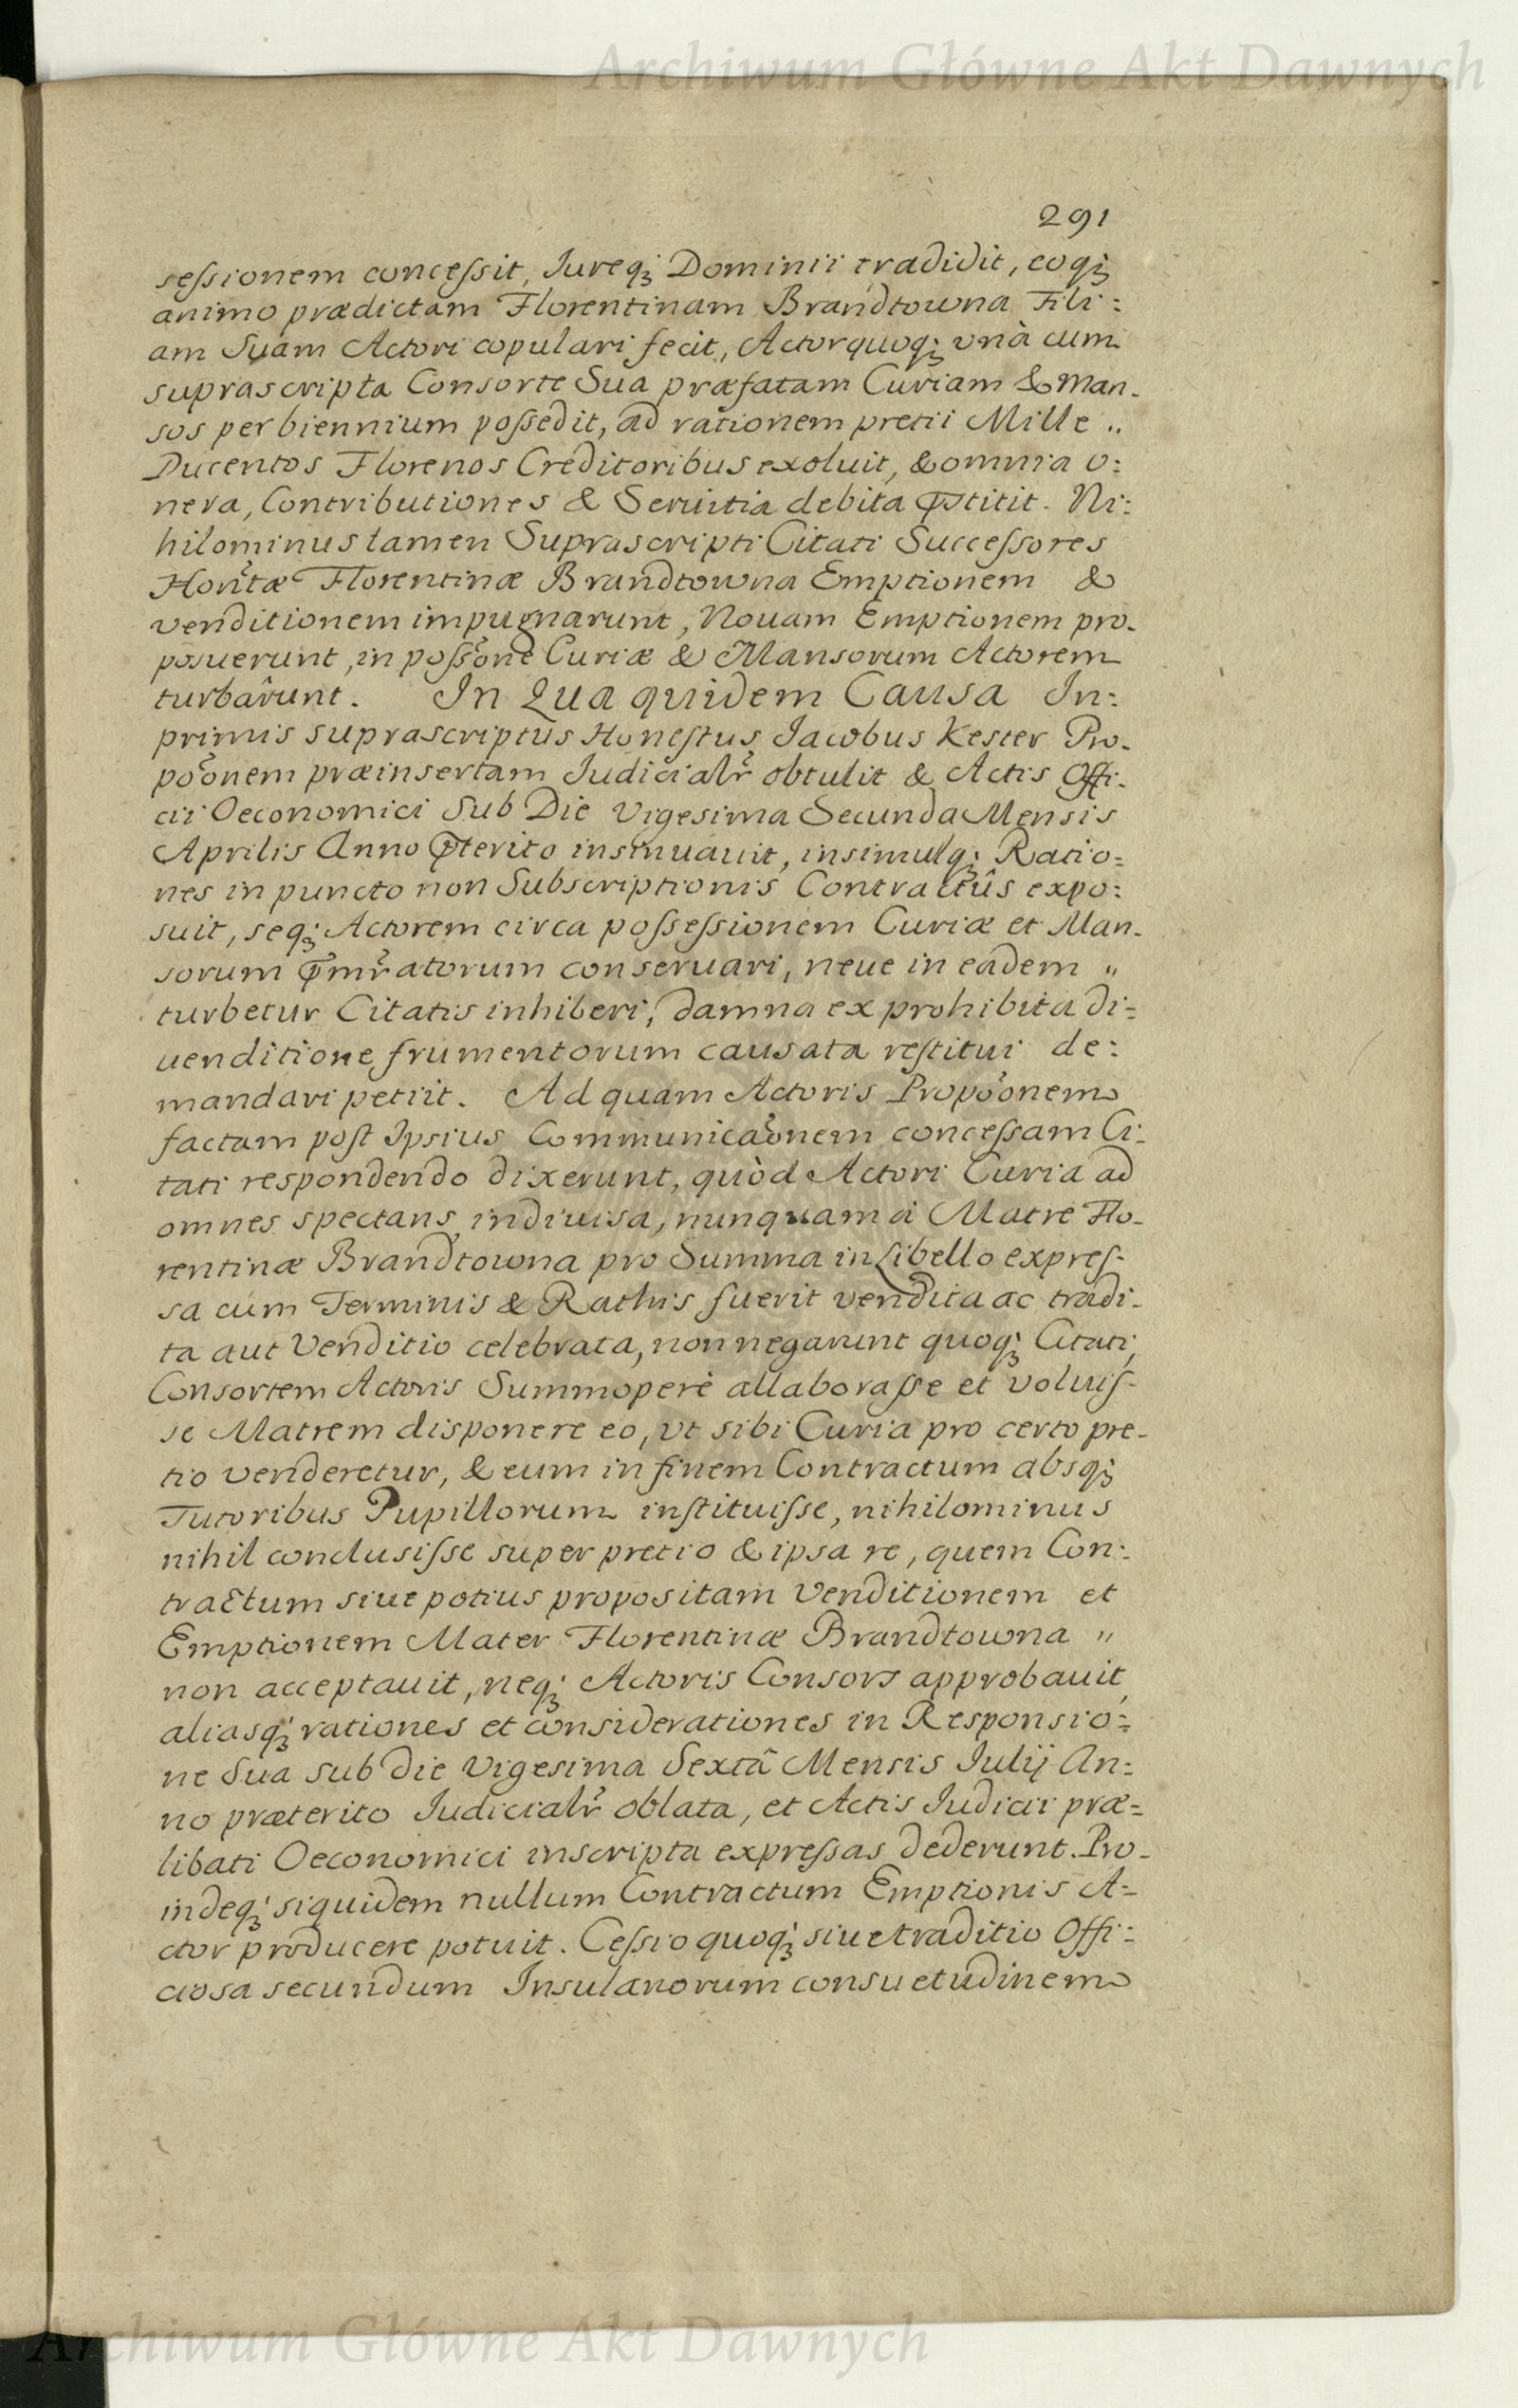 Archiwum Główne Akt Dawnych
291
sessionem concessit, Iureq; Dominii tradidit, eoq;
animo prædictam Florentinam Brandtowna Fili:
am Suam Actori copulari fecit, Actor quoq; unà cum
suprascripta Consorte Sua præfatam Curiam & Man-
sos per biennium possedit, ad rationem pretii Mille ..
Ducentos Florenos Creditoribus exoluit, & omnia o:
nera, Contributiones & Seruitia debita p̃stitit. Ni:
hilominus tamen Suprascripti Citati Successores
Hontæ Florentinæ Brandtowna Emptionem &
venditionem impugnarunt, Nouam Emptionem pro-
posuerunt, in possõne Curiæ & Mansorum Actorem
turbârunt. In Qua quidem Causa In:
primis suprascriptus Honestus Iacobus Kester Pro-
põonem præinsertam Iudicialr̃ obtulit & Actis Offi-
cii Oeconomici Sub Die Vigesima Secunda Mensis
Aprilis Anno p̃terito insinuauit, insimulq; Ratio=
nes in puncto non Subscriptionis Contractûs expo:
suit, seq; Actorem circa possessionem Curiæ et Man-
sorum p̃mr̃atorum conseruari, neue in eadem "
turbetur Citatis inhiberi, damna ex prohibita di=
uenditione frumentorum causata restitui de:
mandari petiit. Ad quam Actoris Propõonem
factam post Ipsius Communicãonem concessam Ci-
tati respondendo dixerunt, quòd Actori Curia ad
omnes spectans indiuisa, nunquam à Matre Flo-
rentinæ Brandtowna pro Summa in Libello expres-
sa cum Terminis & Rathis fuerit vendita ac tradi-
ta aut Venditio celebrata, non negarunt quoq; Citati,
Consortem Actoris Summoperè allaborasse et voluis-
se Matrem disponere eo, ut sibi Curia pro certo pre-
tio venderetur, & eum in finem Contractum absq;
Tutoribus Pupillorum instituisse, nihilominus
nihil conclusisse super pretio & ipsa re, quem Con:
tractum siue potius propositam Venditionem et
Emptionem Mater Florentinæ Brandtowna "
non acceptauit, neq; Actoris Consors approbauit,
aliasq; rationes et considerationes in Responsio=
ne Sua sub die Vigesima Sextâ Mensis Iulij An:
no præterito Iudicialr̃ oblata, et Actis Iudicii præ=
libati Oeconomici inscripta expressas dederunt. Pro-
indeq; siquidem nullum Contractum Emptionis A=
ctor producere potuit. Cessio quoq; siue traditio Offi:
ciosa secundum Insulanorum consuetudinem
Archiwum Główne Akt Dawnych